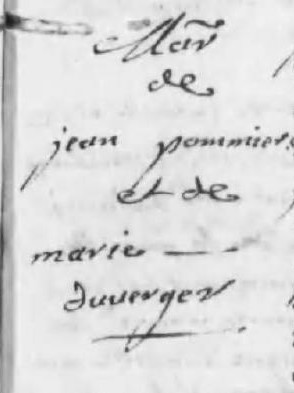 Mar
de
jean pommiers
et de
marie
duverger